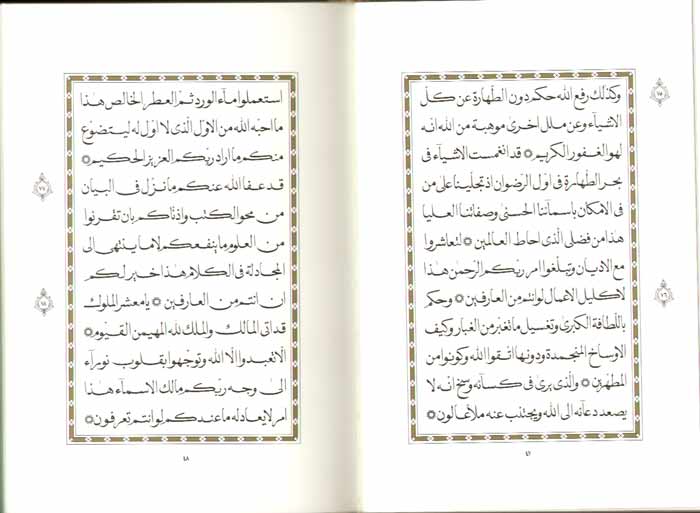 وكذلك رفع الله حكم دون الطهارة عن كل
٧٥
الاشيآء وعن ملل اخرى موهبة من الله انه
لهو الغفور الكريم ۞ قد انغمست الاشيآء فى
بحر الطهارة فى اول الرضوان اذ تجلينا على من
فى الامكان باسمآئنا الحسنى وصفاتنا العليا
هذا من فضلى الذى احاط العالمين ۞ لتعاشروا
مع الاديان وتبلغوا امر ربكم الرحمن هذا
لاكليل الاعمال لو انتم من العارفين ۞ وحكم
٧٦
باللطافة الكبرى وتغسيل ما تغبر من الغبار وكيف
الاوساخ المنجمدة ودونها اتقوا الله وكونوا من
المطهرين ۞ والذى يرى فى كسآئه وسخ انه لا
يصعد دعآئه الى الله ويجتنب عنه ملأ عالون ۞
٤٧
استعملوا مآء الورد ثم العطر الخالص هذا
ما احبه الله من الاول الذى لا اول له ليتضوع
منكم ما اراد ربكم العزيز الحكيم ۞
قد عفا الله عنكم ما نزل فى البيان
٧٧
من محو الكتب واذناكم بان تقرئوا
من العلوم ما ينفعكم لا ما ينتهى الى
المجادلة فى الكلام هذا خير لكم
ان انتم من العارفين ۞ يا معشر الملوك
٧٨
قد اتى المالك والملك لله المهيمن القيوم ۞
الا تعبدوا الا الله وتوجهوا بقلوب نورآء
الى وجه ربكم مالك الاسمآء هذا
امر لا يعادله ما عندكم لو انتم تعرفون ۞
٤٨